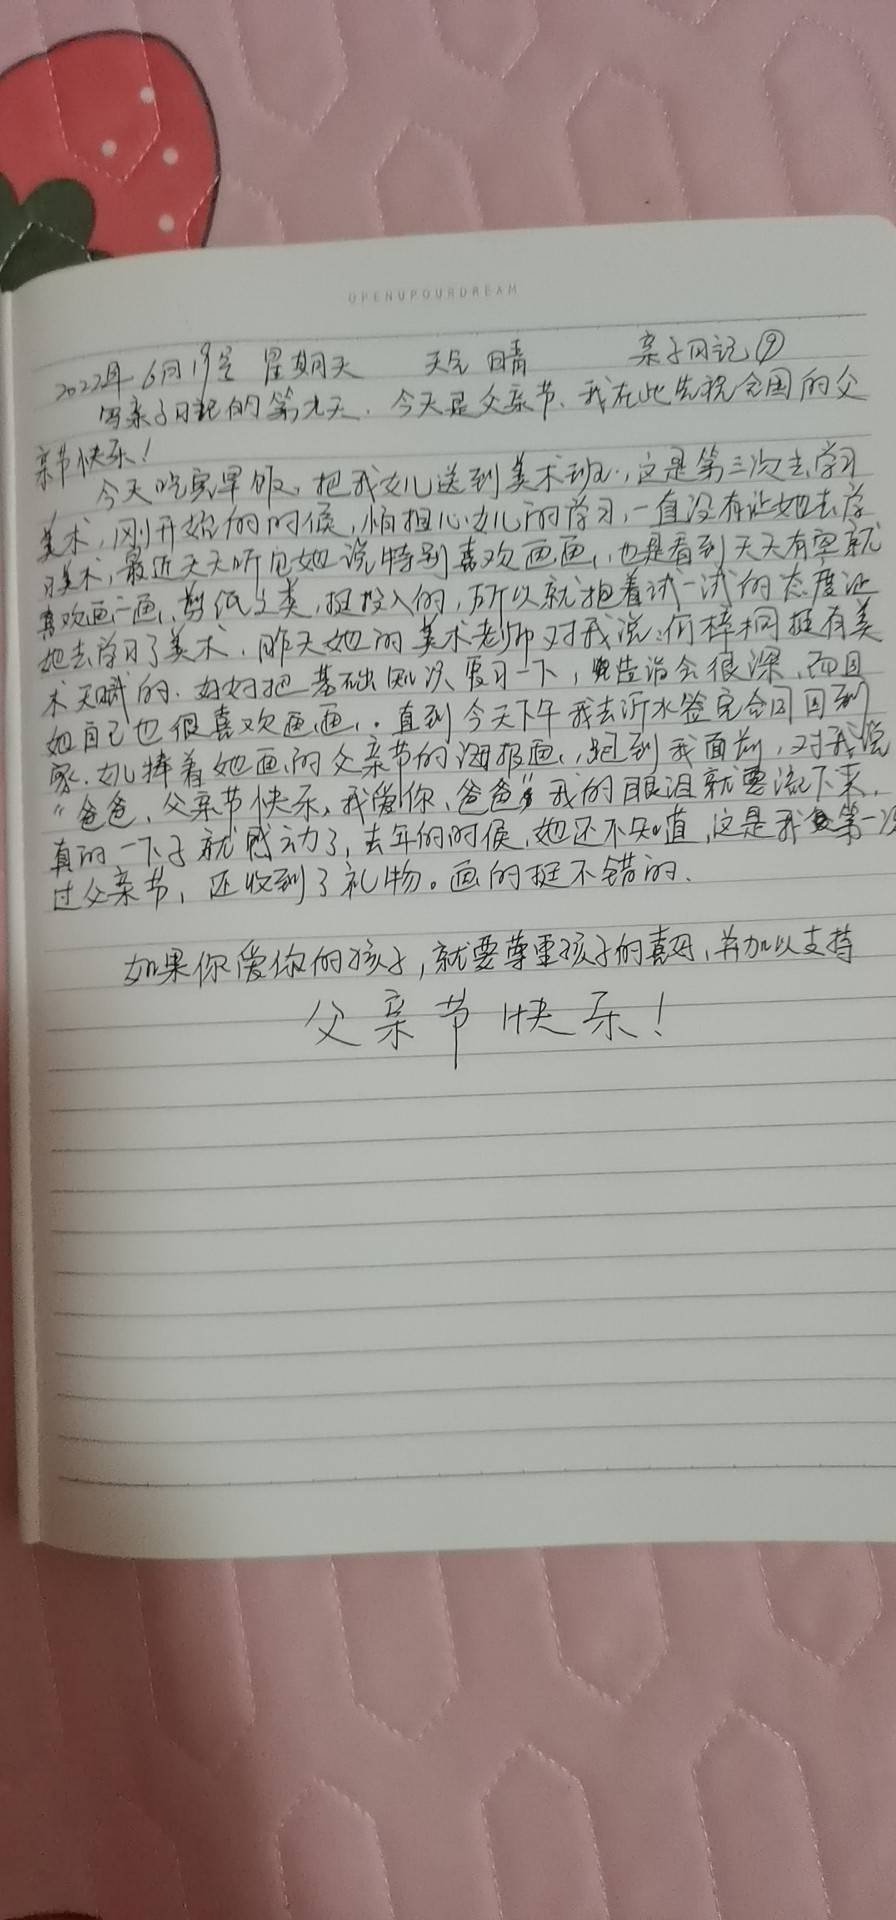 OPENUPOURDREAM
2022年6月19号 星期天 天气 晴 亲子日记⑨
写亲子日记的第九天.今天是父亲节、我在此先祝全国的父
亲节快乐!
今天吃完早饭,把我女儿送到美术班,这是第三次去学习
美术,刚开始的时候,怕担心女儿的学习,一直没有让她去学
习美术,最近天天听见她说特别喜欢画画,也是看到天天有空就
喜欢画一画,剪纸之类,挺投入的,所以就抱着试一试的态度让
她去学习了美术.昨天她的美术老师对我说:何梓桐挺有美
术天赋的.好好把基础知识复习一下,造诣会很深.而且
她自己也很喜欢画画.直到今天下午我去沂水签完合同回到
家.女儿捧着她画的父亲节的海报画,跑到我面前,对我说
“爸爸,父亲节快乐,我爱你,爸爸”我的眼泪就要流下来.
真的一下子就感动了,去年的时候,她还不知道,这是我第一次
过父亲节,还收到了礼物。画的挺不错的.
如果你爱你的孩子,就要尊重孩子的喜好,并加以支持
父亲节快乐!